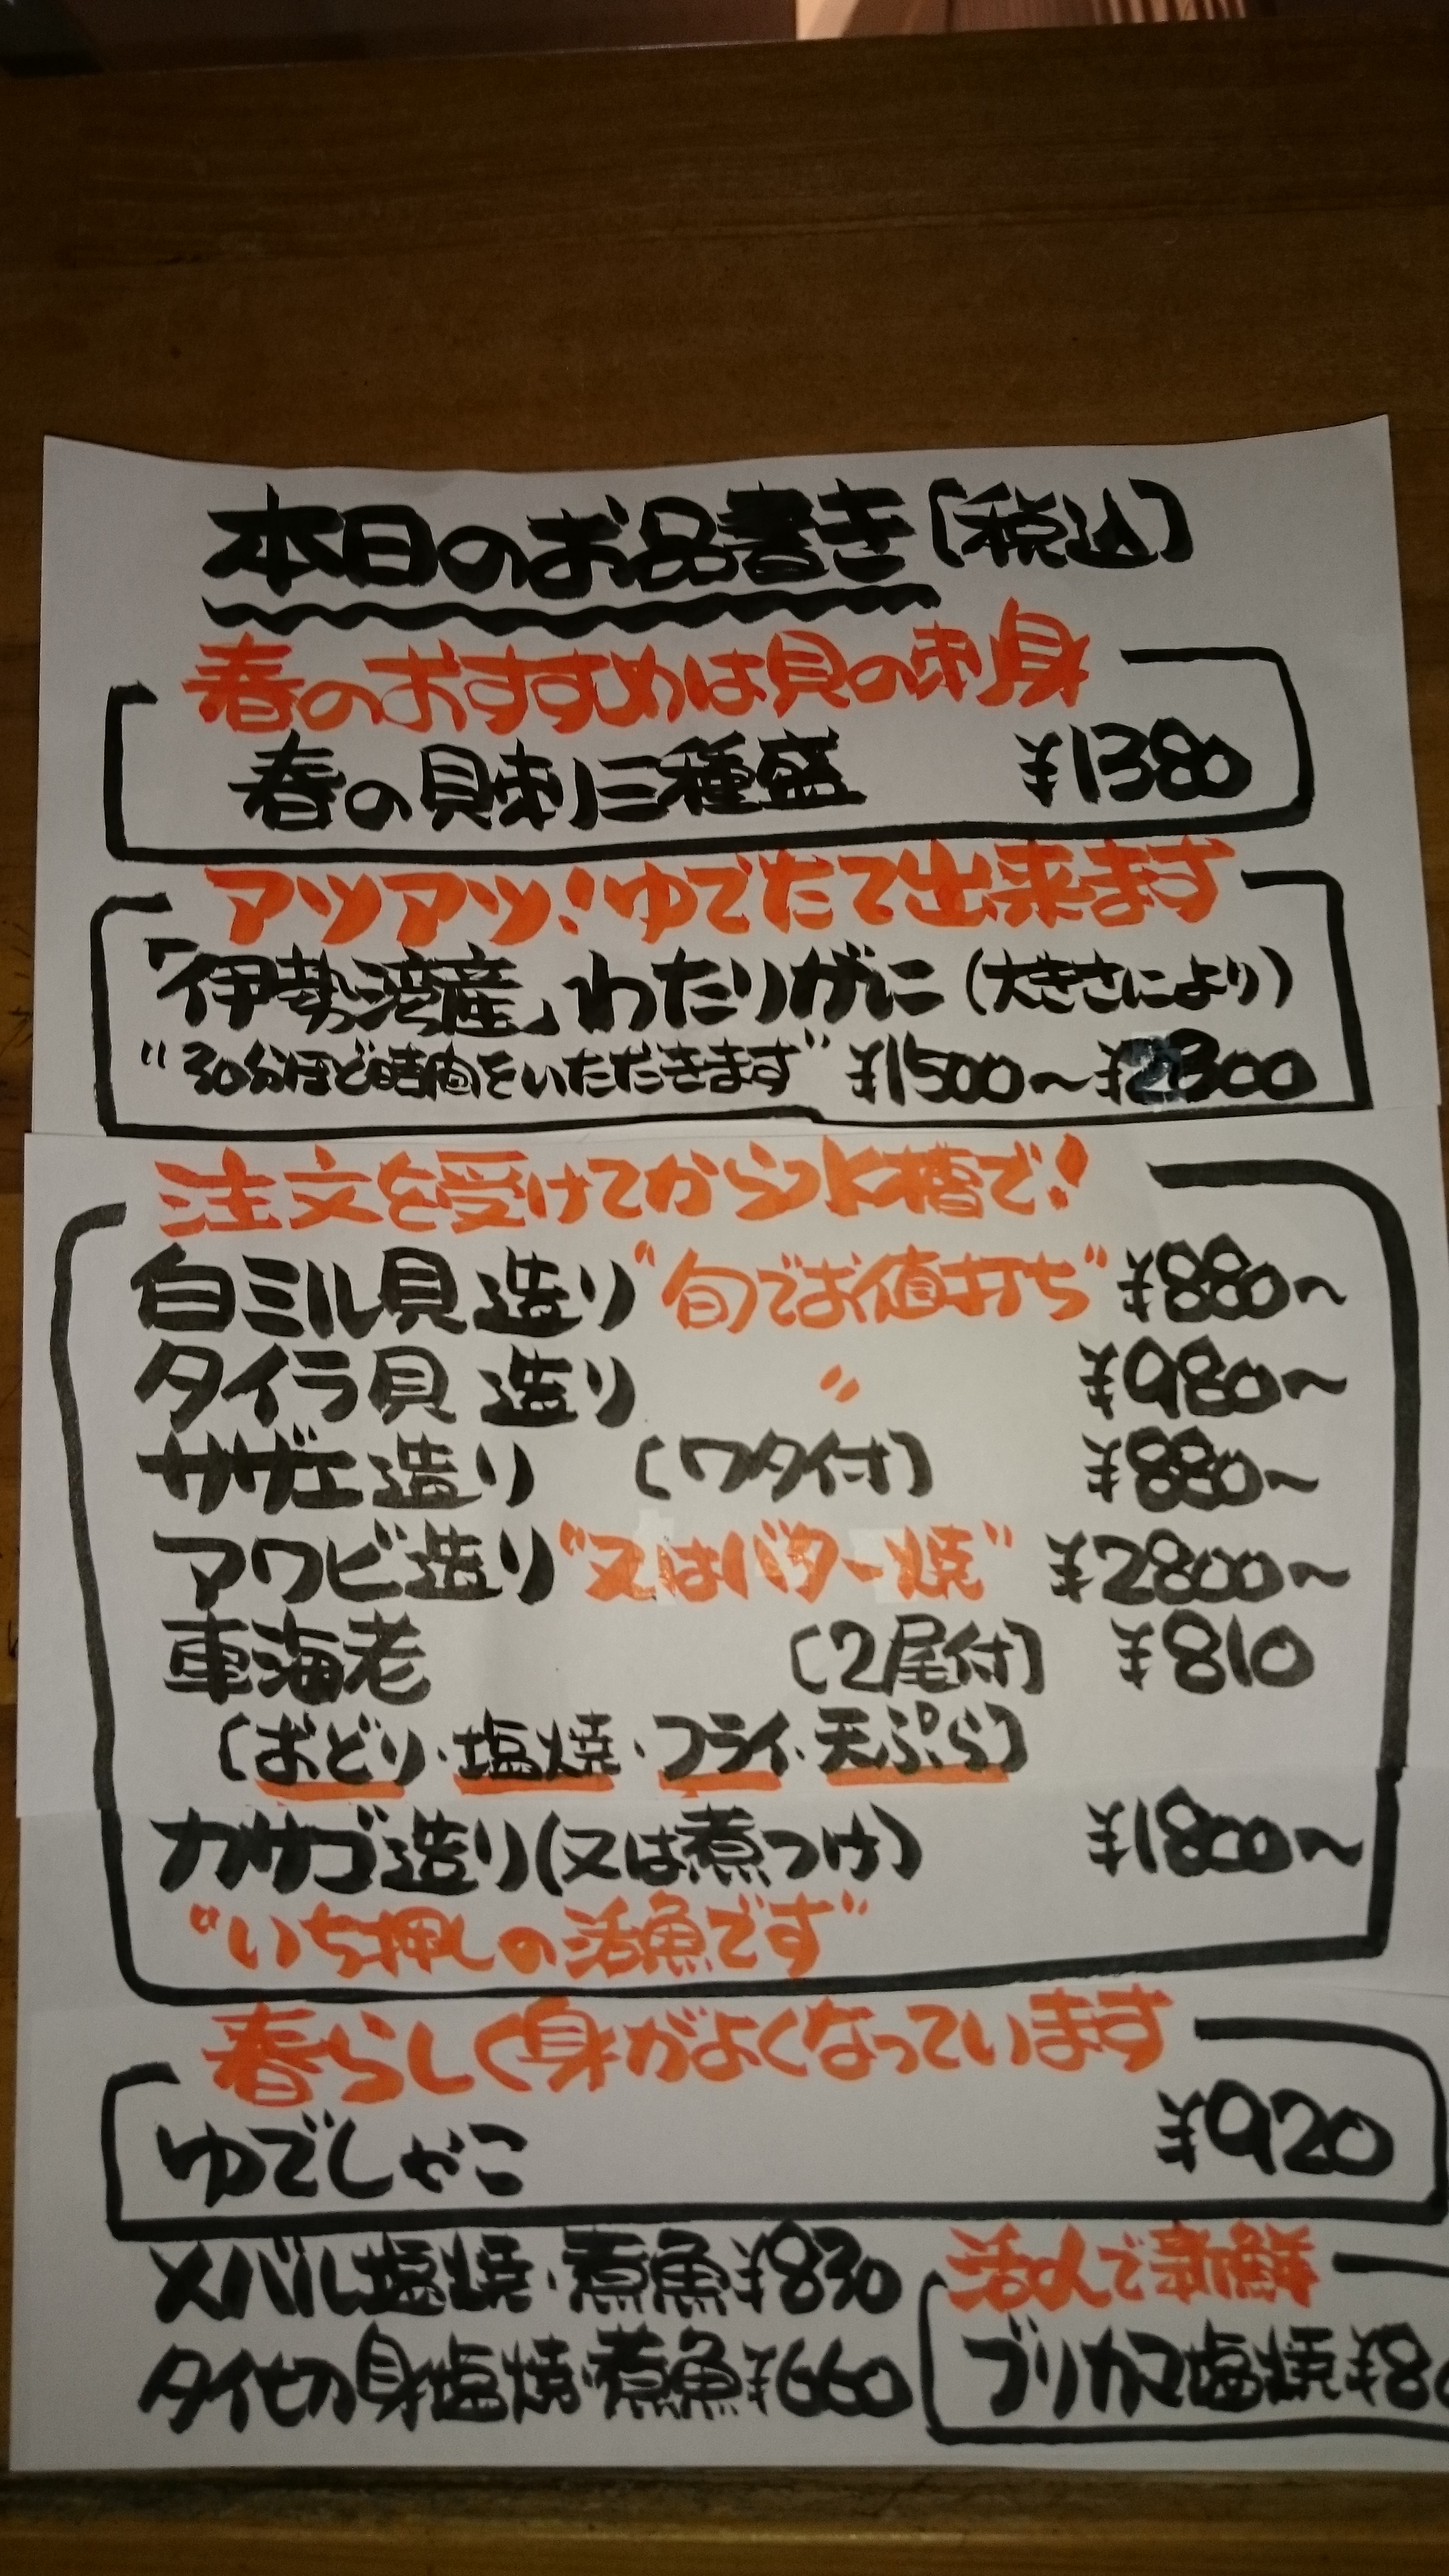 本日のお品書き〔税込〕
春のおすすめは貝の刺身
春の貝刺三種盛 ¥1380
アツアツ!ゆでたて出来ます
「伊勢湾産」わたりがに(大きさにより)
"30分ほど時間をいただきます" ¥1500〜¥2300
注文を受けてから水槽で!
白ミル貝造り"旬でお値打ち" ¥880〜
タイラ貝造り 〃 ¥980〜
サザエ造り 〔ワタ付〕 ¥880〜
アワビ造り"又はバター焼" ¥2800〜
車海老 〔2尾付〕 ¥810
〔おどり・塩焼・フライ・天ぷら〕
カサゴ造り(又は煮つけ) ¥1800〜
"いち押しの活魚です"
春らしく身がよくなっています
ゆでしゃこ ¥920
メバル塩焼・煮魚¥830
タイセの身塩焼・煮魚¥660
活〆で新鮮
ブリカマ塩焼¥8